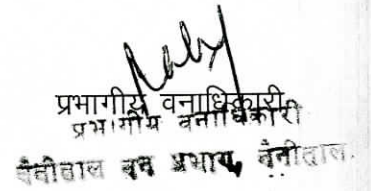 प्रभागीय वनाधिकारी
प्रभागीय वनाधिकारी
नैनीताल वन प्रभाग, नैनीताल.